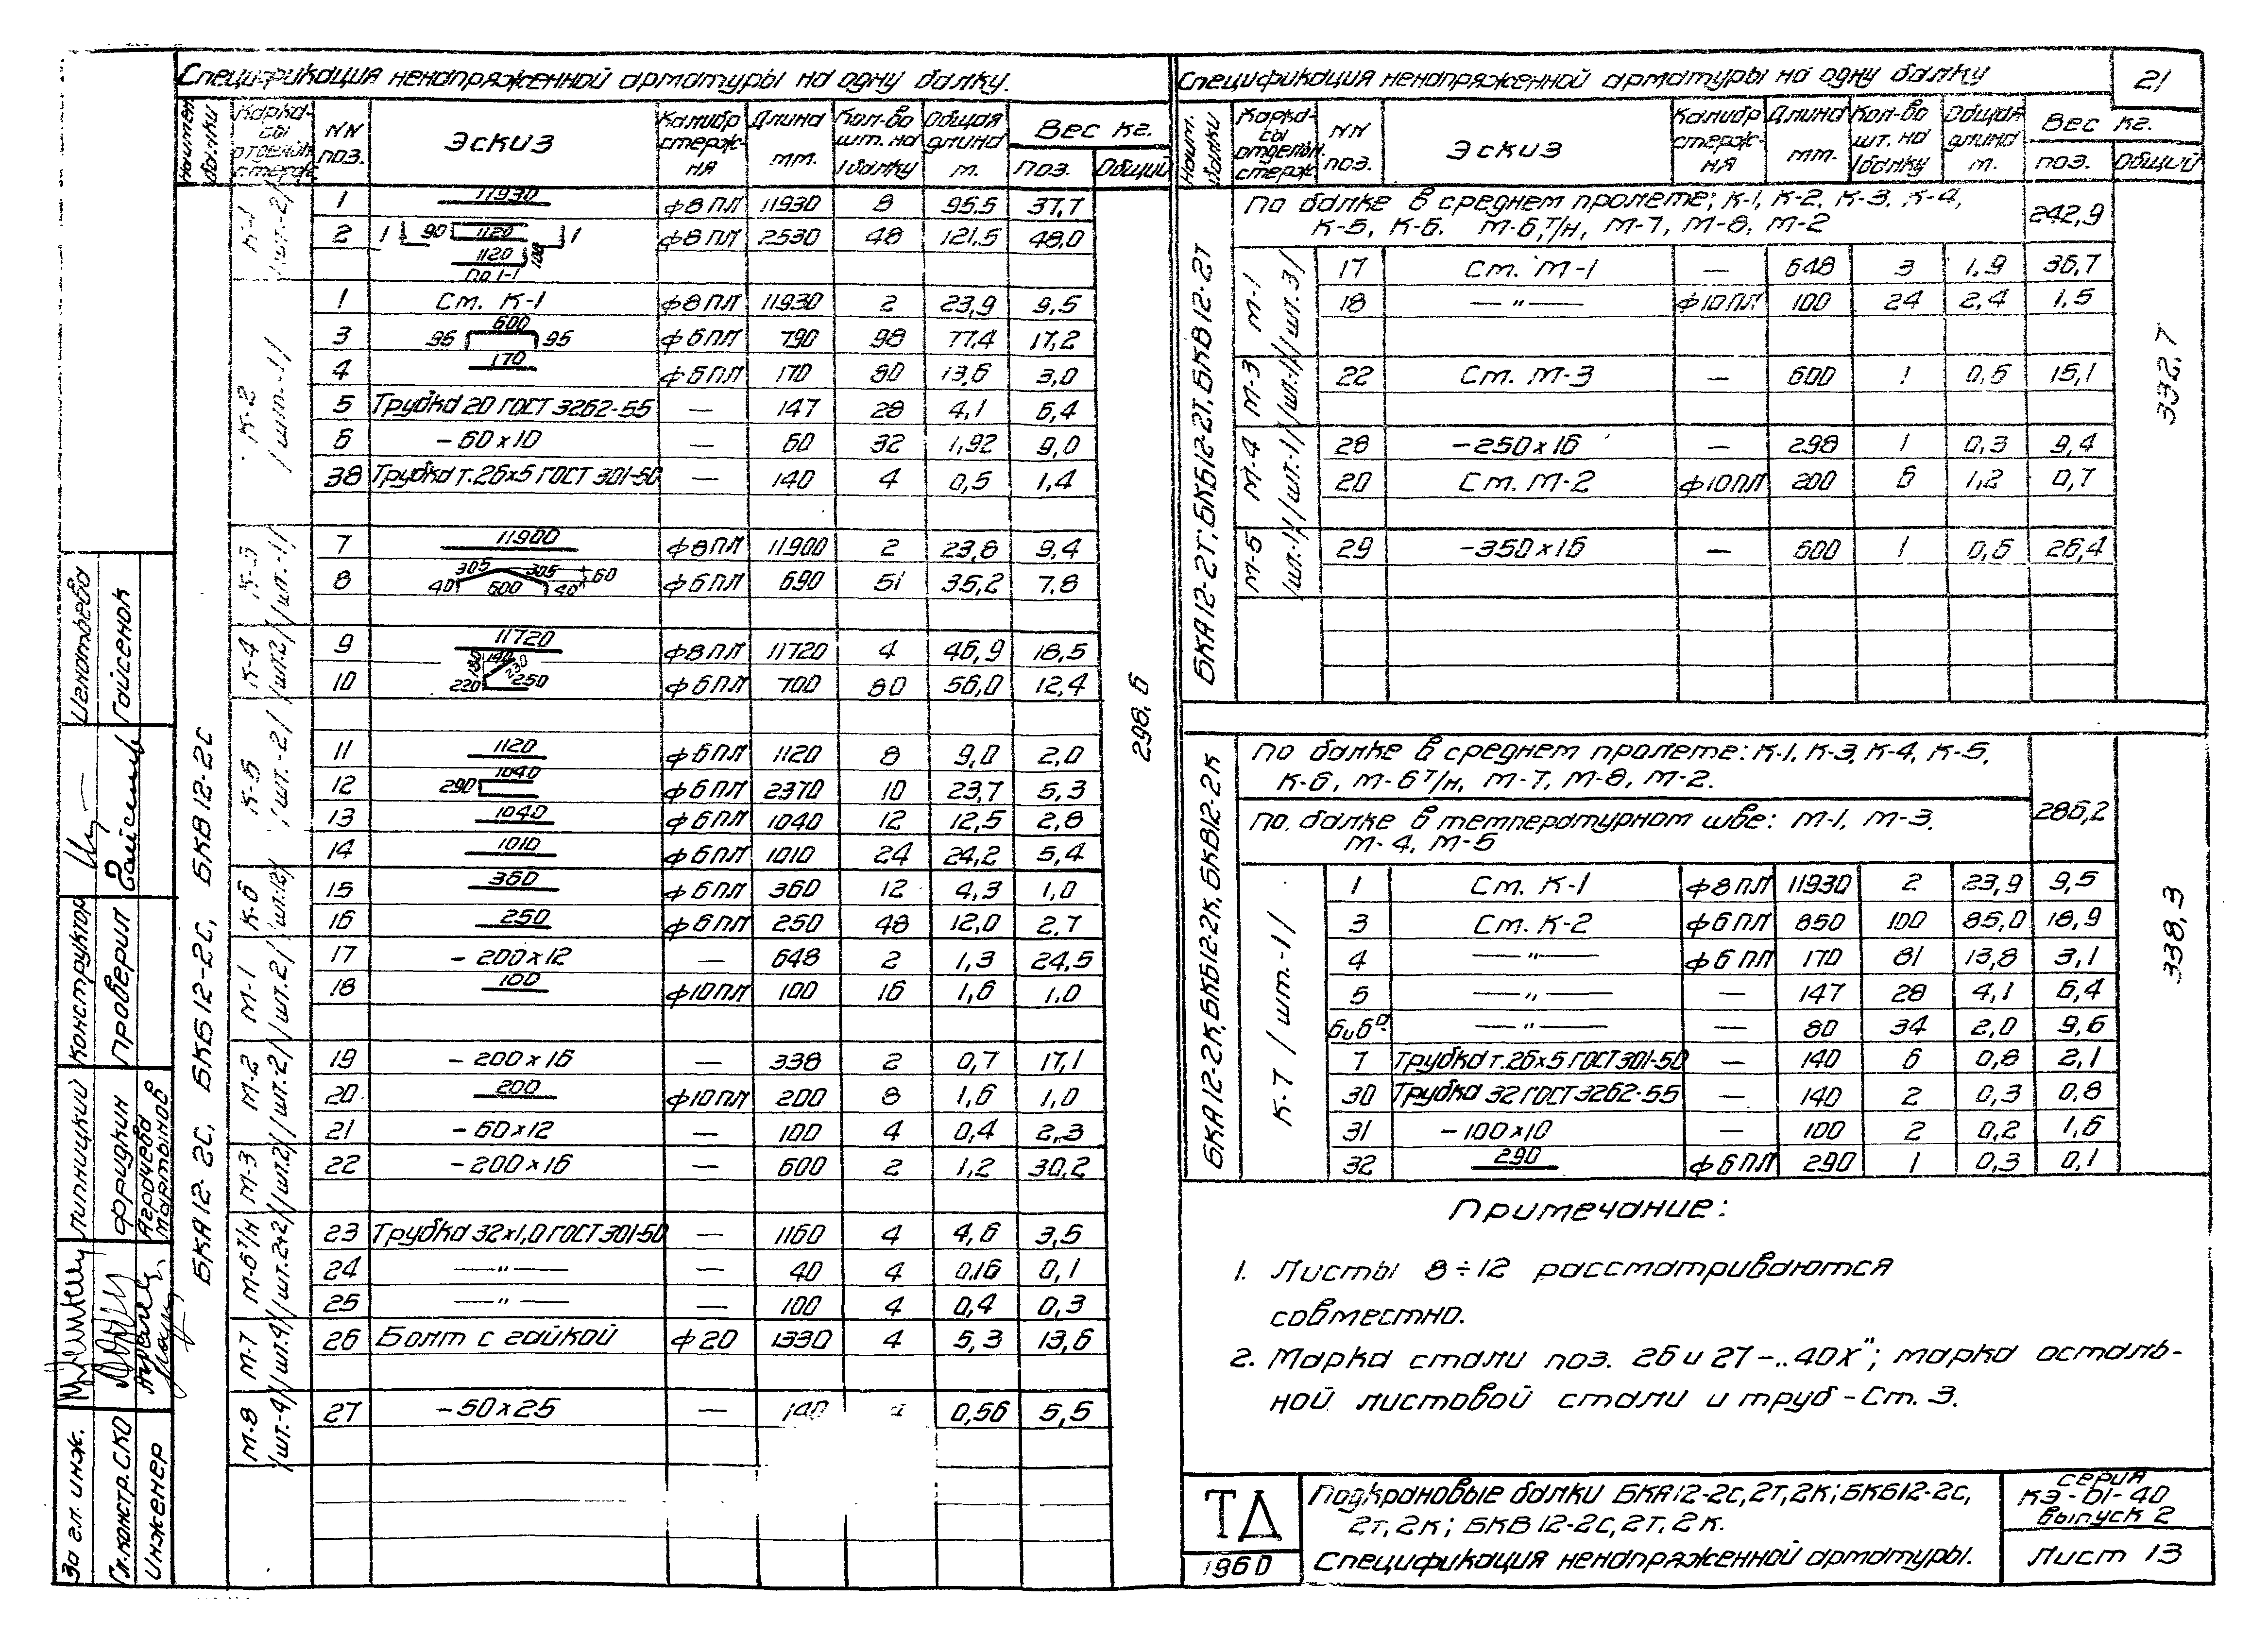 Спецификация ненапряженной арматуры на одну балку.
Наимен балки | Каркасы отдельн. стерж. | NN поз. | Эскиз | Калибр стержня | Длина мм. | Кол-во шт. на 1 балку | Общая длина м. | Вес кг. поз. | Общий
БКА 12-2С, БКБ 12-2С, БКВ 12-2С
298,6
К-1 /шт.-2/
1 11930 ф8ПЛ 11930 8 95.5 37,7
2 1 90 1120 1 ф8ПЛ 2530 48 121,5 48,0
1120 100
по 1-1
К-2 /шт.-1/
1 Ст. К-1 ф8ПЛ 11930 2 23,9 9,5
3 95 600 95 ф6ПЛ 790 98 77,4 17,2
4 170 ф6ПЛ 170 80 13,6 3,0
5 Трубка 20 ГОСТ 3262-55 — 147 28 4,1 6,4
6 -60х10 — 60 32 1,92 9,0
38 Трубка т.26х5 ГОСТ 301-50 — 140 4 0,5 1,4
К-3 /шт.-1/
7 11900 ф8ПЛ 11900 2 23,8 9,4
8 40 305 305 600 40 60 ф6ПЛ 690 51 35,2 7.8
К-4 /шт.2/
9 11720 ф8ПЛ 11720 4 46,9 18,5
10 180 140 230 220 250 ф6ПЛ 700 80 56,0 12,4
К-5 /шт.-2/
11 1120 ф6ПЛ 1120 8 9,0 2,0
12 290 1040 ф6ПЛ 2370 10 23,7 5,3
13 1040 ф6ПЛ 1040 12 12,5 2,8
14 1010 ф6ПЛ 1010 24 24,2 5,4
К-6 /шт.12/
15 360 ф6ПЛ 360 12 4,3 1,0
16 250 ф6ПЛ 250 48 12,0 2.7
М-1 /шт.2/
17 -200х12 — 648 2 1,3 24,5
18 100 ф10ПЛ 100 16 1,6 1,0
М-2 /шт.2/
19 -200х16 — 338 2 0,7 17,1
20 200 ф10ПЛ 200 8 1,6 1,0
21 -60х12 — 100 4 0,4 2,3
М-3 /шт.2/
22 -200х16 — 600 2 1,2 30,2
М-6т/н /шт.2+2/
23 Трубка 32х1,0 ГОСТ 301-50 — 1160 4 4,6 3,5
24 —"— — 40 4 0,16 0,1
25 —"— — 100 4 0,4 0,3
М-7 /шт.4/
26 Болт с гайкой ф20 1330 4 5,3 13,6
М-8 /шт.-4/
27 -50х25 — 140 0,56 5,5
Спецификация ненапряженной арматуры на одну балку
21
Наим. балки | Каркасы отдельн. стерж. | NN поз. | Эскиз | Калибр стержня | Длина мм. | Кол-во шт. на 1 балку | Общая длина м. | Вес кг. поз. | Общий
БКА 12-2Т, БКБ12-2Т, БКВ 12-2Т
332,7
По балке в среднем пролете; К-1, К-2, К-3, К-4,
К-5, К-6. М-6,т/н, М-7, М-8, М-2
242,9
М-1 /шт.3/
17 Ст. М-1 — 648 3 1,9 36,7
18 —"— ф10ПЛ 100 24 2,4 1,5
М-3 /шт.-1/
22 Ст. М-3 — 600 1 0,6 15,1
М-4 /шт.-1/
28 -250х16 — 298 1 0,3 9,4
20 Ст. М-2 ф10ПЛ 200 6 1,2 0,7
М-5 /шт.-1/
29 -350х16 — 600 1 0,6 26,4
БКА 12-2К, БКБ12-2К, БКВ12-2К
338,3
По балке в среднем пролете: К-1, К-3, К-4, К-5,
К-6, М-6т/н, М-7, М-8, М-2.
286,2
По. балке в температурном шве: М-1, М-3.
М-4, М-5
К-7 /шт.-1/
1 Ст. К-1 ф8ПЛ 11930 2 23,9 9,5
3 Ст. К-2 ф6ПЛ 850 100 85,0 18,9
4 —"— ф6ПЛ 170 81 13,8 3,1
5 —"— — 147 28 4,1 6,4
6и6а —"— — 80 34 2,0 9,6
7 Трубка т.26х5 ГОСТ 301-50 — 140 6 0,8 2,1
30 Трубка 32 ГОСТ 3262-55 — 140 2 0,3 0,8
31 -100х10 — 100 2 0,2 1,6
32 290 ф6ПЛ 290 1 0,3 0,1
Примечание:
1. Листы 8÷12 рассматриваются
совместно.
2. Марка стали поз. 26 и 27-„40Х"; марка осталь-
ной листовой стали и труб-Ст. 3.
ТД
1960
Подкрановые балки БКА12-2С, 2Т, 2К; БКБ12-2С,
2Т, 2К; БКВ 12-2С, 2Т, 2К.
Спецификация ненапряженной арматуры.
серия
КЭ-01-40
выпуск 2
Лист 13
За гл. инж. Липницкий
Гл. констр. СКО Фридкин
Инженер Аграчева Мартынов
Конструктор Игнатьева
Проверил Гайсенок